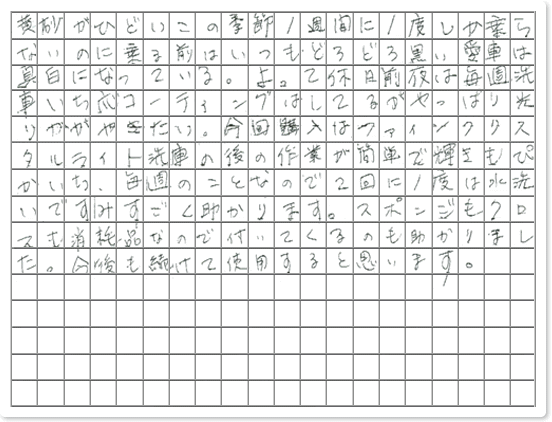 黄砂がひどいこの季節1週間に1度しか乗ら
ないのに乗る前はいつもどろどろ黒い愛車は
真白になっている。よって休日前夜は毎週洗
車いち応コーティングはしてるがやっぱり洗
りがかやきたい。今回購入はファインクリス
タルライト洗車の後の作業が簡単で輝きもぴ
かいち、毎週のことなので2回に1度は水洗
いですみすごく助かります。スポンジもクロ
スも消耗品なので付いてくるのも助かりまし
た。今後も続けて使用すると思います。